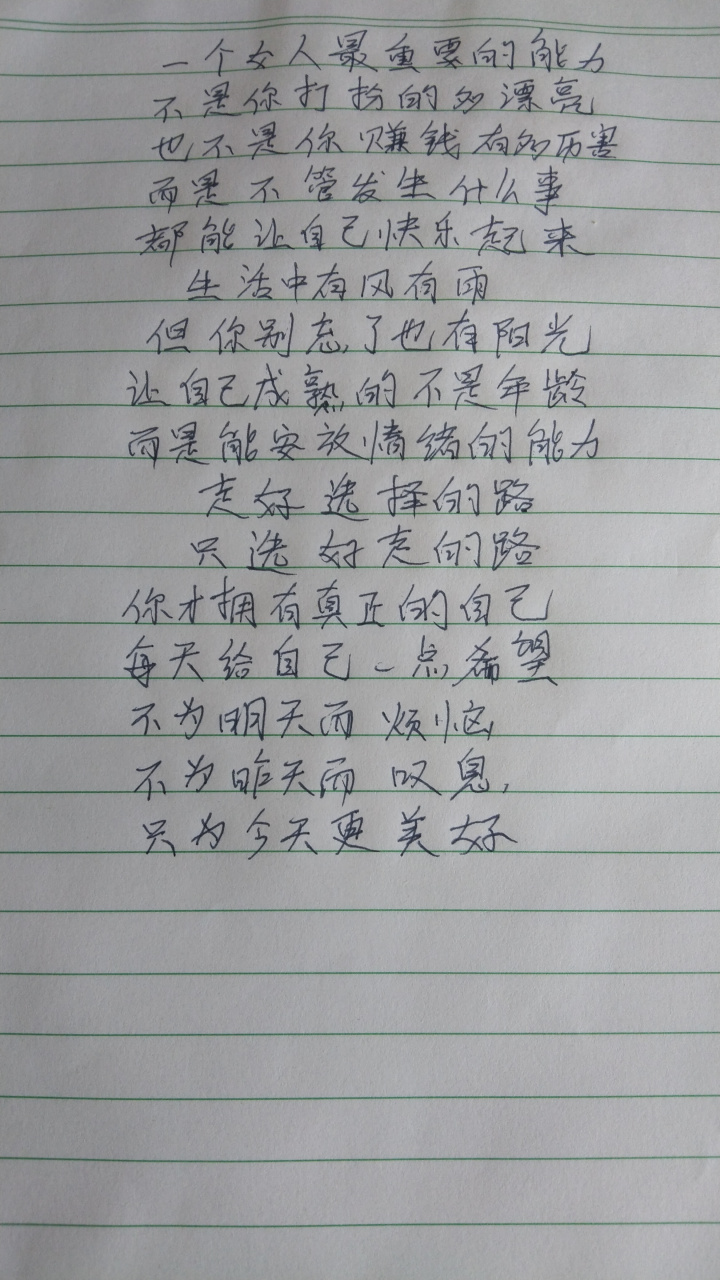 一个女人最重要的能力
不是你打扮的多漂亮
也不是你赚钱有多厉害
而是不管发生什么事
都能让自己快乐起来
生活中有风有雨
但你别忘了也有阳光
让自己成熟的不是年龄
而是能安放情绪的能力
走好选择的路
只选好走的路
你才拥有真正的自己
每天给自己一点希望
不为明天而烦恼
不为昨天而叹息,
只为今天更美好